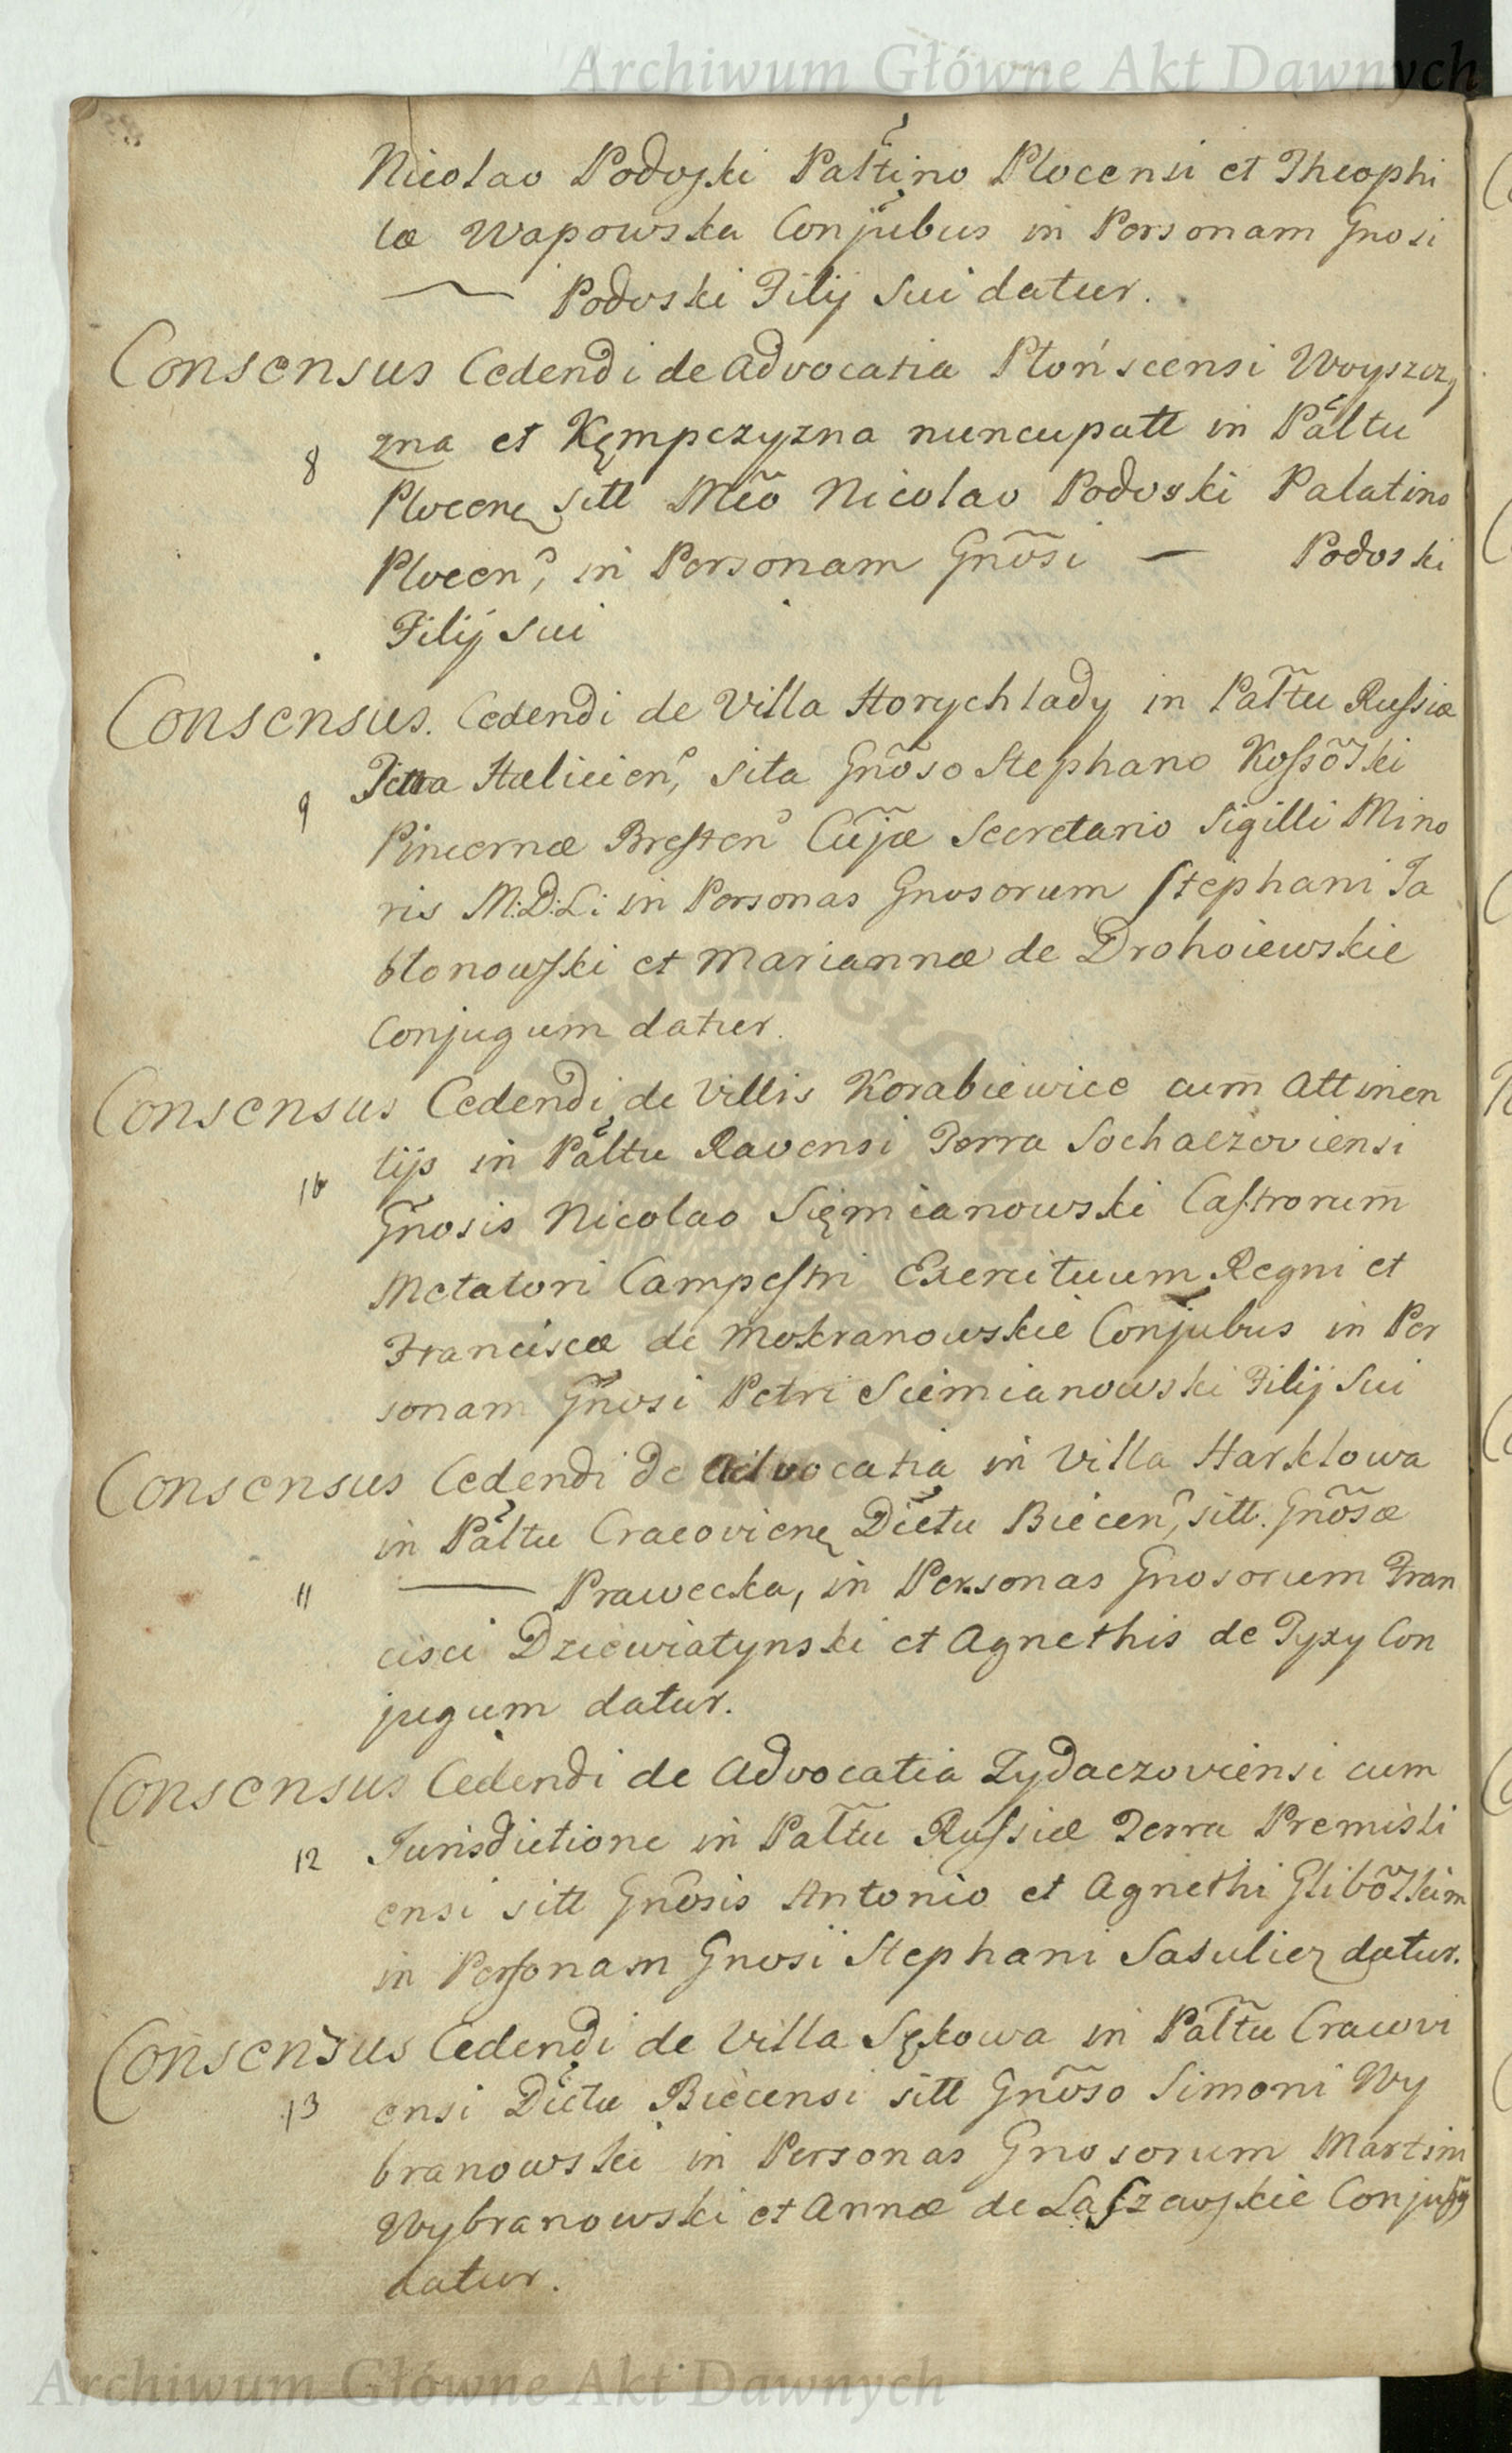 Archiwum Główne Akt Dawnych
Nicolao Podoski Paltino Plocensi et Theophi
la Wapowska Conjubus in Personam Gnosi
— Podoski Filij Sui datur.
Consensus Cedendi de Advocatia Płońscensi Woyszcz
8 zna et Kęmpczyzna nuncupatt in Paltu
Plocen sitt Mco Nicolao Podoski Palatino
Plocen, in Personam Gnosi — Podoski
Filij Sui
Consensus. Cedendi de Villa Horychlady in Paltu Russiæ
9 Terra Halicien, sita Gnoso Stephano Kossoski
Pincernæ Bresten Cujæ Secretario Sigilli Mino
ris M:D:L: in Personas Gnosorum Stephani Ja
blonowski et Mariannæ de Drohoiewskie
Conjugum datur.
Consensus Cedendi de Villis Korabiewice cum Attinen
10 tijs in Paltu Ravensi Terra Sochaczoviensi
Gnosis Nicolao Sięmianowski Castrorum
Metatori Campestri Exercituum Regni et
Franciscæ de Mokranowskie Conjubus in Per
sonam Gnosi Petri Siemianowski Filij Sui
Consensus Cedendi de Advocatia in Villa Harklowa
in Paltu Cracovien Dictu Biecen, sitt. Gnosæ
11 — Prawecka, in Personas Gnosorum Fran
cisci Dziewiatynski et Agnethis de Tyxy Con
jugum datur.
Consensus Cedendi de Advocatia Zydaczoviensi cum
12 Jurisdictione in Paltu Russiæ Terra Premisli
ensi sitt Gnosis Antonio et Agnethi Gliboskim
in Personam Gnosi Stephani Sasulicz datur.
Consensus Cedendi de Villa Sękowa in Paltu Cracovi
13 ensi Dictu Biecensi sitt Gnoso Simoni Wy
branowski in Personas Gnosorum Martini
Wybranowski et Annæ de Laszewskie Conjugg
datur.
Archiwum Główne Akt Dawnych